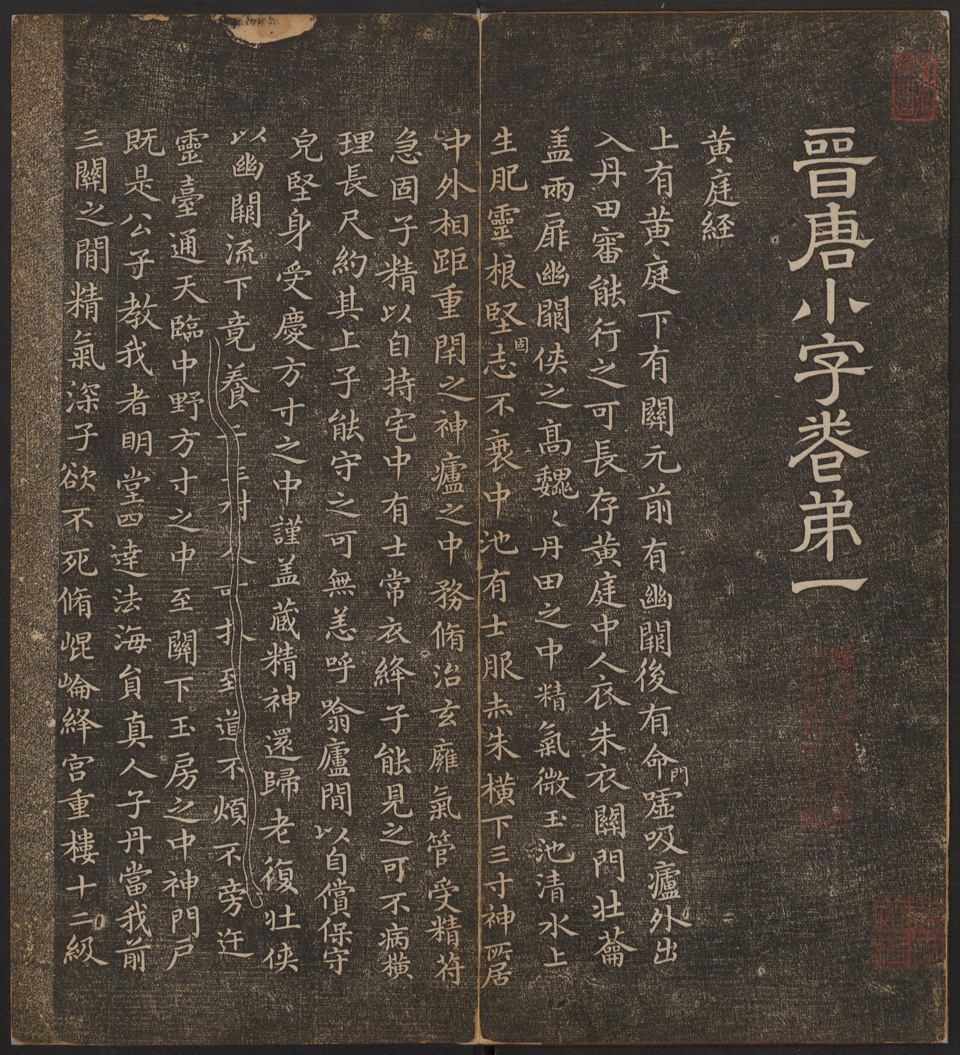 晉唐小字卷弟一
黃庭経
上有黃庭下有關元前有幽闕後有命門噓吸廬外出
入丹田審能行之可長存黃庭中人衣朱衣關門壯蘥
盖兩扉幽闕俠之髙魏〻丹田之中精氣微玉池清水上
生肥靈根堅固志不衰中池有士服赤朱橫下三寸神所居
中外相距重閇之神廬之中務脩治玄癰氣管受精苻
急固子精以自持宅中有士常衣絳子能見之可不病橫
理長尺約其上子能守之可無恙呼噏廬間以自償保守
皃堅身受慶方寸之中謹盖藏精神還歸老復壯俠
以幽闕流下竟養至道不煩不旁迕
靈臺通天臨中野方寸之中至關下玉房之中神門戶
既是公子教我者明堂四達法海貟真人子丹當我前
三關之閒精氣深子欲不死脩崐崘絳宫重樓十二級